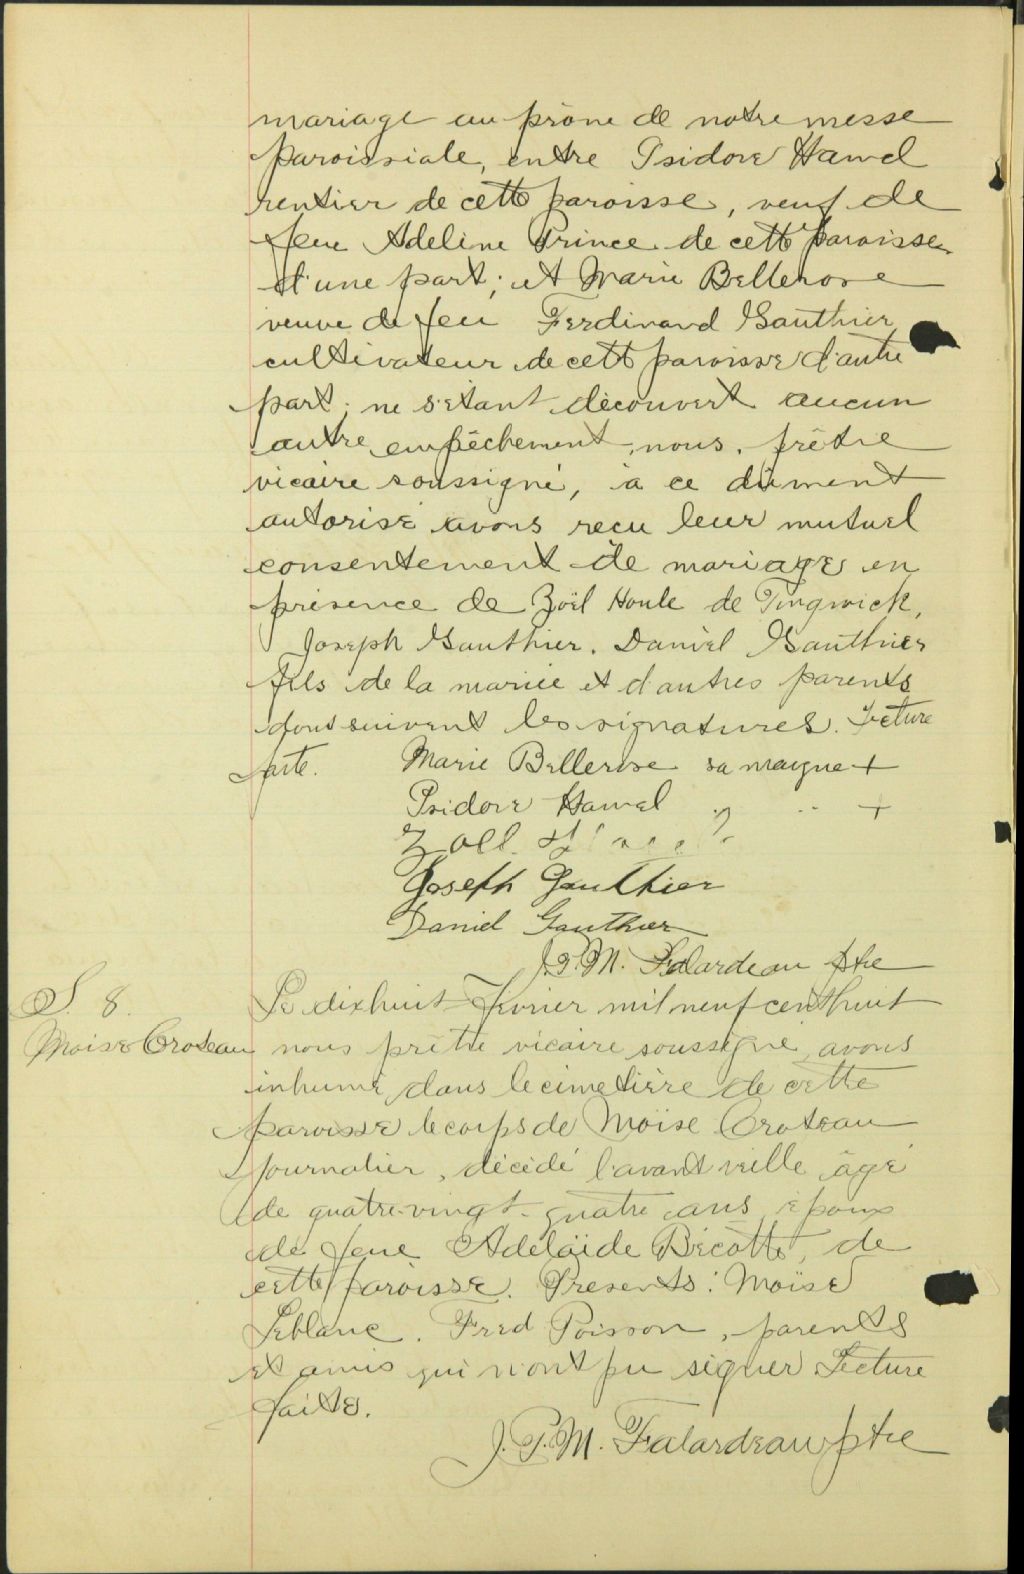 mariage au prône de notre messe
paroissiale, entre Isidore Hamel
rentier de cette paroisse, veuf de
feue Adeline Prince de cette paroisse
d'une part; et Marie Bellerose
veuve de feu Ferdinand Gauthier
cultivateur de cette paroisse d'autre
part; ne s'étant découvert aucun
autre empêchement, nous, prêtre
vicaire soussigné, à ce dûment
autorisé avons reçu leur mutuel
consentement de mariage en
présence de Zoël Houle de Tingwick,
Joseph Gauthier. Daniel Gauthier
fils de la mariée et d'autres parents
dont suivent les signatures. Lecture
faite. Marie Bellerose sa marque +
Isidore Hamel " " +
Zoël
Joseph Gauthier
Daniel Gauthier
J.P.M. Falardeau ptre
S. 8.
Moise Croteau
Le dixhuit Février mil neuf cent huit
nous prêtre vicaire soussigné, avons
inhumé dans le cimetière de cette
paroisse le corps de Moïse Croteau
journalier, décédé l'avant veille âgé
de quatre-vingt-quatre ans, époux
de feue Adelaïde Bécotte, de
cette paroisse. Présents: Moïse
Leblanc. Fred Poisson, parents
et amis qui n'ont pu signer Lecture
faite.
J.P.M. Falardeau ptre